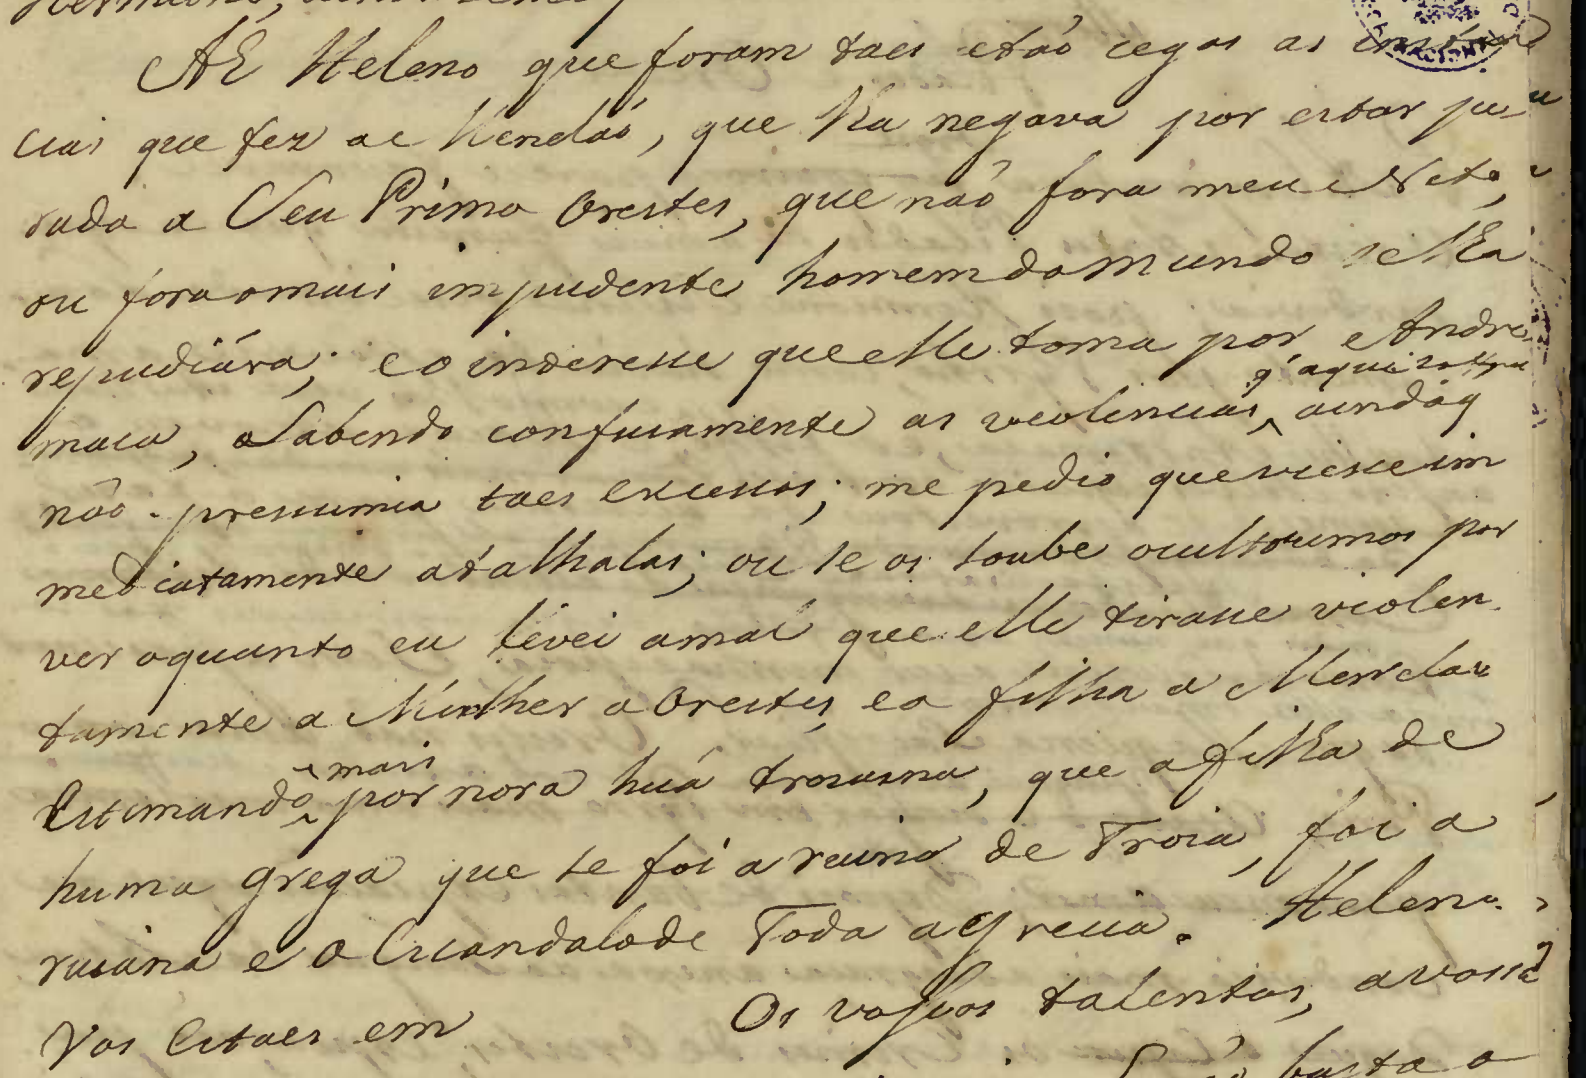 Ah Heleno que foram taes e tão cegas as instan
cias que fez a Meneláo, que lha negava por estar ju
rada a Seu Primo Orestes, que não fora meu Neto,
ou fora o mais impudente homem do Mundo se lha
repudiára; e o interesse que elle toma por Andro
q' aqui
maca, Sabendo confusamente as violencias, aindaq
não presumia taes excessos; me pedio que viesse im
mediatamente atalhalas; ou se os soube ocultoumos por
ver o quanto eu levei a mal que elle tirasse violen
tamente a Mulher a Orestes, e a filha a Menelau
mais
Estimando por nora húa troiana, que a filha de
huma grega que se foi a ruina de Troia, foi a
ruina e o Escandalo de Toda a Grecia. Helen.
Vos Estaes em Os vossos talentos, a vossa
basta o